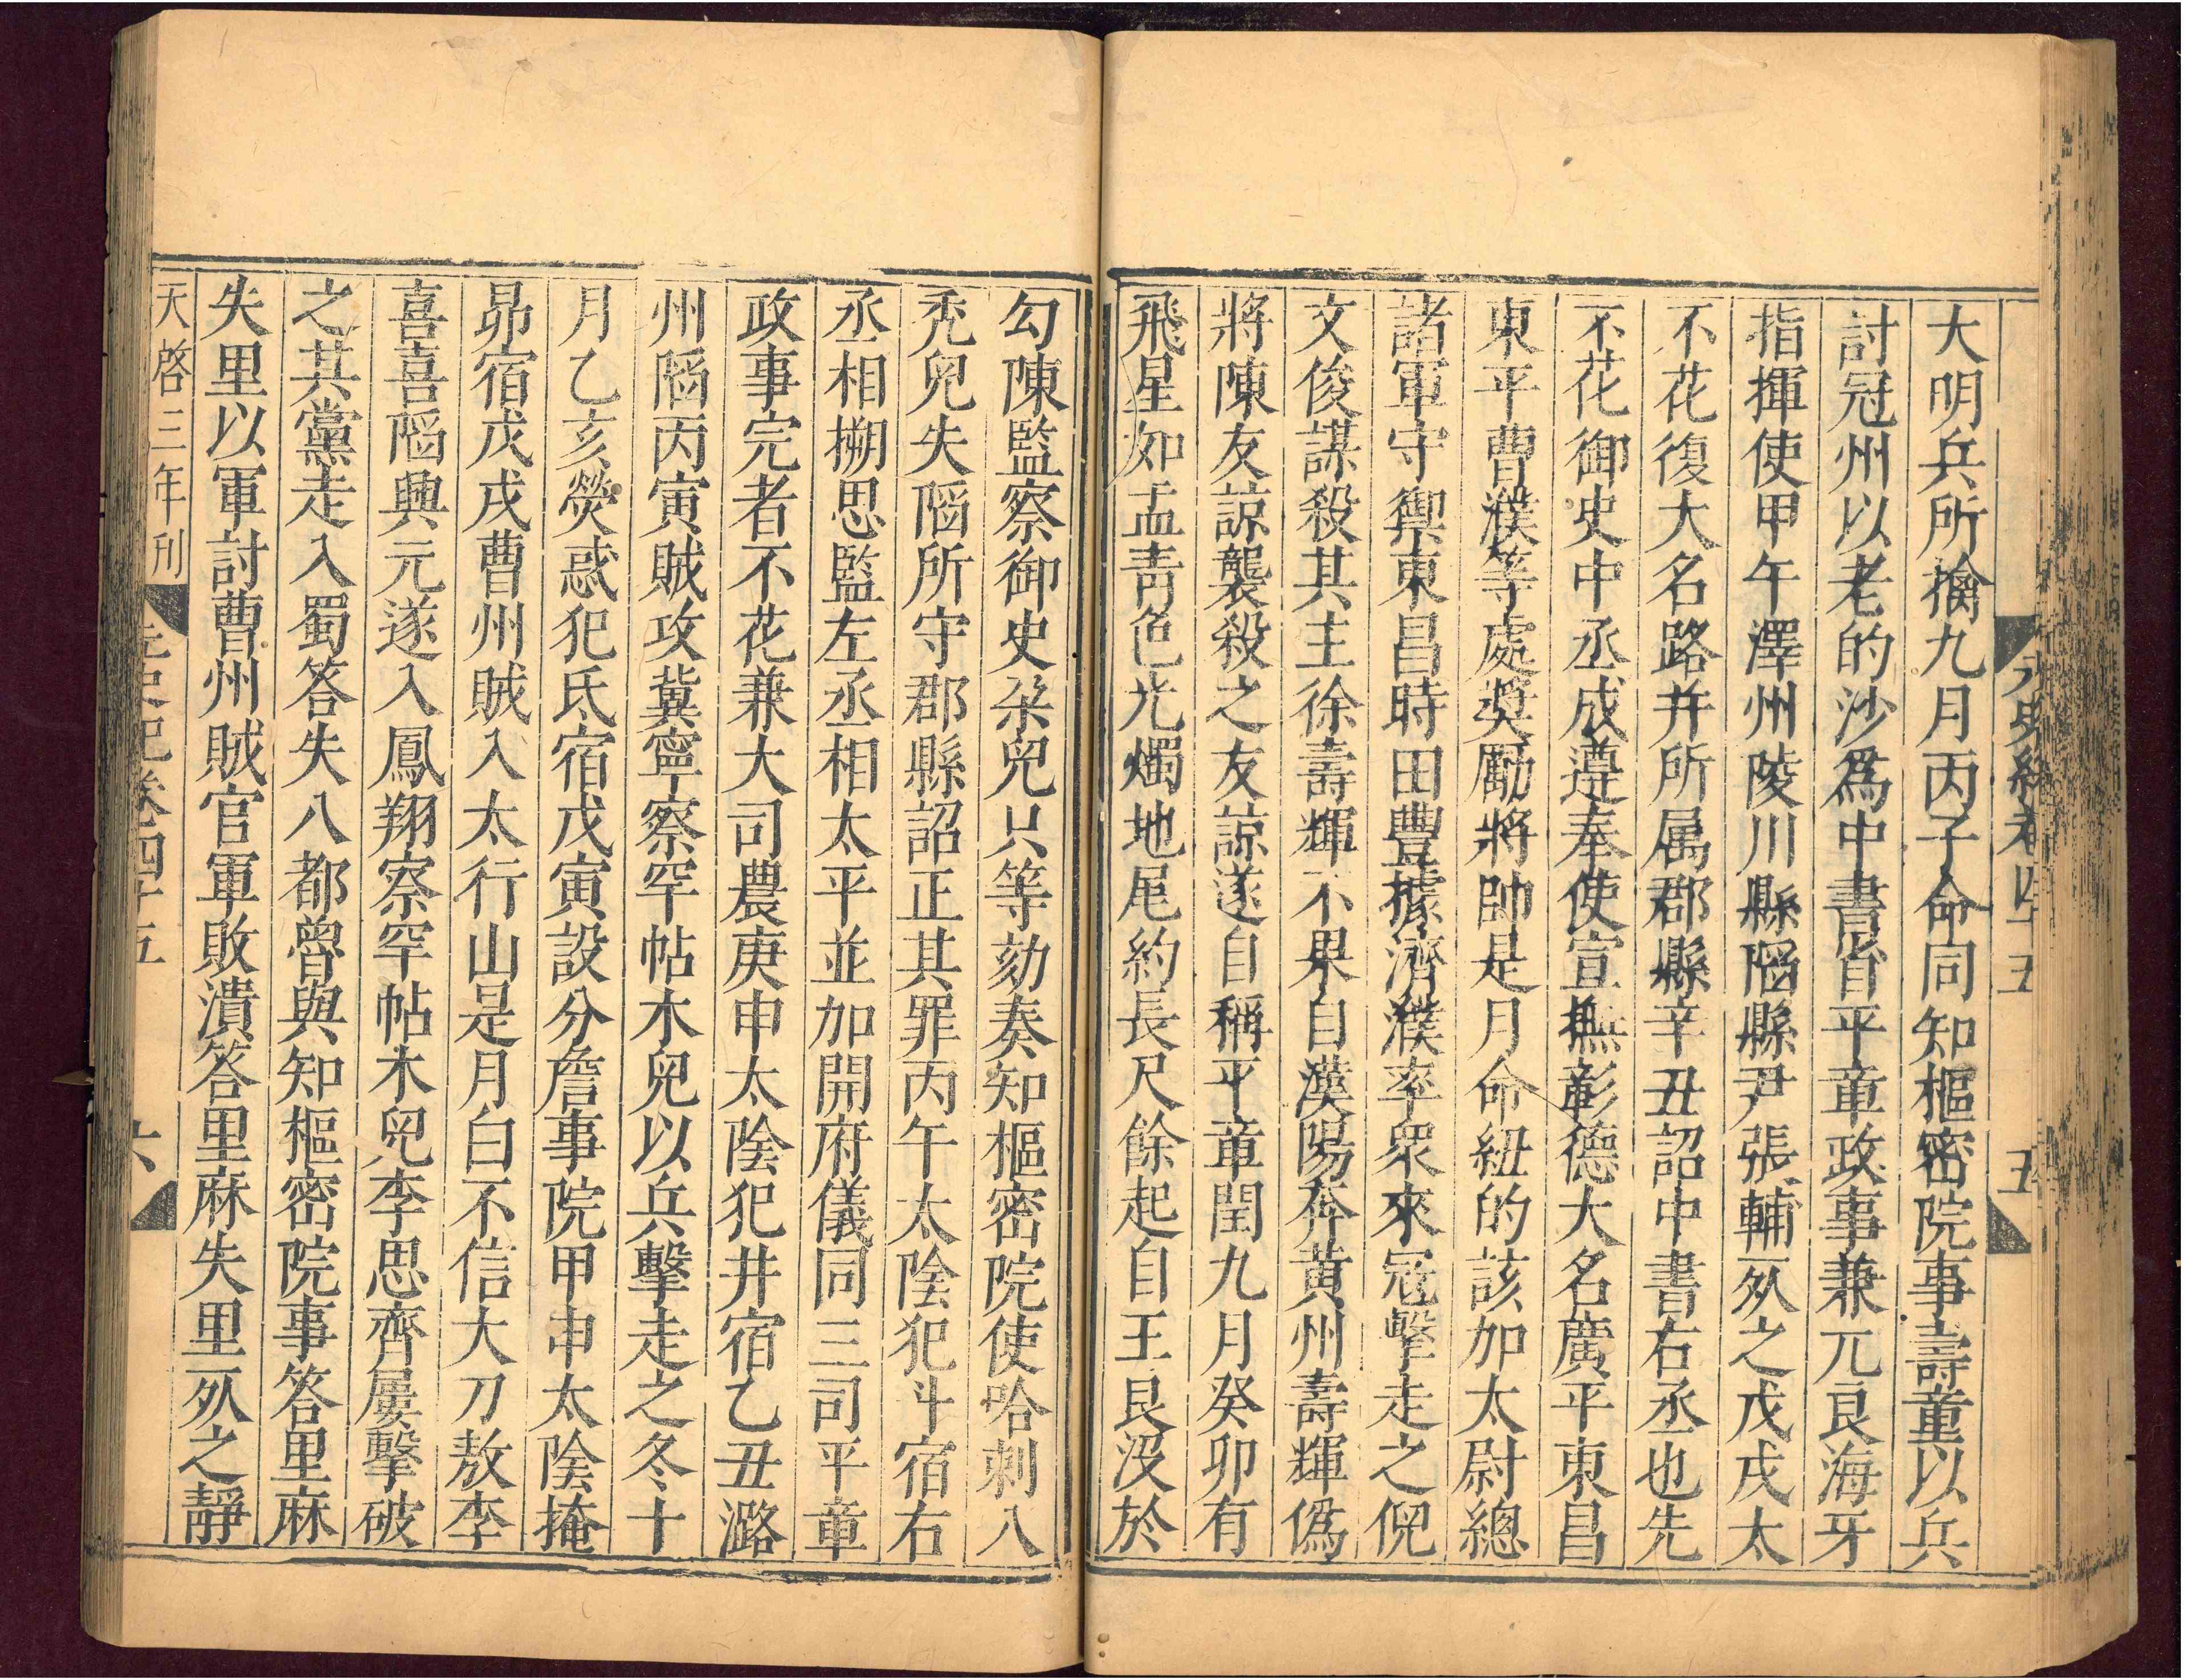 元史紀卷四十五
五
大明兵所擒九月丙子命同知樞密院事壽童以兵
討冠州以老的沙爲中書省平章政事兼兀良海牙
指揮使甲午澤州陵川縣陷縣尹張輔死之戊戌太
不花復大名路并所属郡縣辛丑詔中書右丞也先
不花御史中丞成遵奉使宣撫彰德大名廣平東昌
東平曹濮等處奬勵將帥是月命紐的該加太尉總
諸軍守禦東昌時田豐據濟濮率衆來冦擊走之倪
文俊謀殺其主徐壽輝不果自漢陽奔黃州壽輝僞
將陳友諒襲殺之友諒遂自稱平章閏九月癸卯有
飛星如盂青色光燭地尾約長尺餘起自王良没於
勾陳監察御史朶兒只等劾奏知樞密院使哈剌八
禿兒失陷所守郡縣詔正其罪丙午太陰犯斗宿右
丞相搠思監左丞相太平並加開府儀同三司平章
政事完者不花兼大司農庚申太陰犯井宿乙丑潞
州陷丙寅賊攻冀寧察罕帖木兒以兵擊走之冬十
月乙亥熒惑犯氐宿戊寅設分詹事院甲申太陰掩
昴宿戊戌曹州賊入太行山是月白不信大刀敖李
喜喜陷興元遂入鳳翔察罕帖木兒李思齊屢擊破
之其黨走入蜀答失八都魯與知樞密院事答里麻
失里以軍討曹州賊官軍敗潰答里麻失里死之靜
天啓三年刊
元史紀卷四十五
六